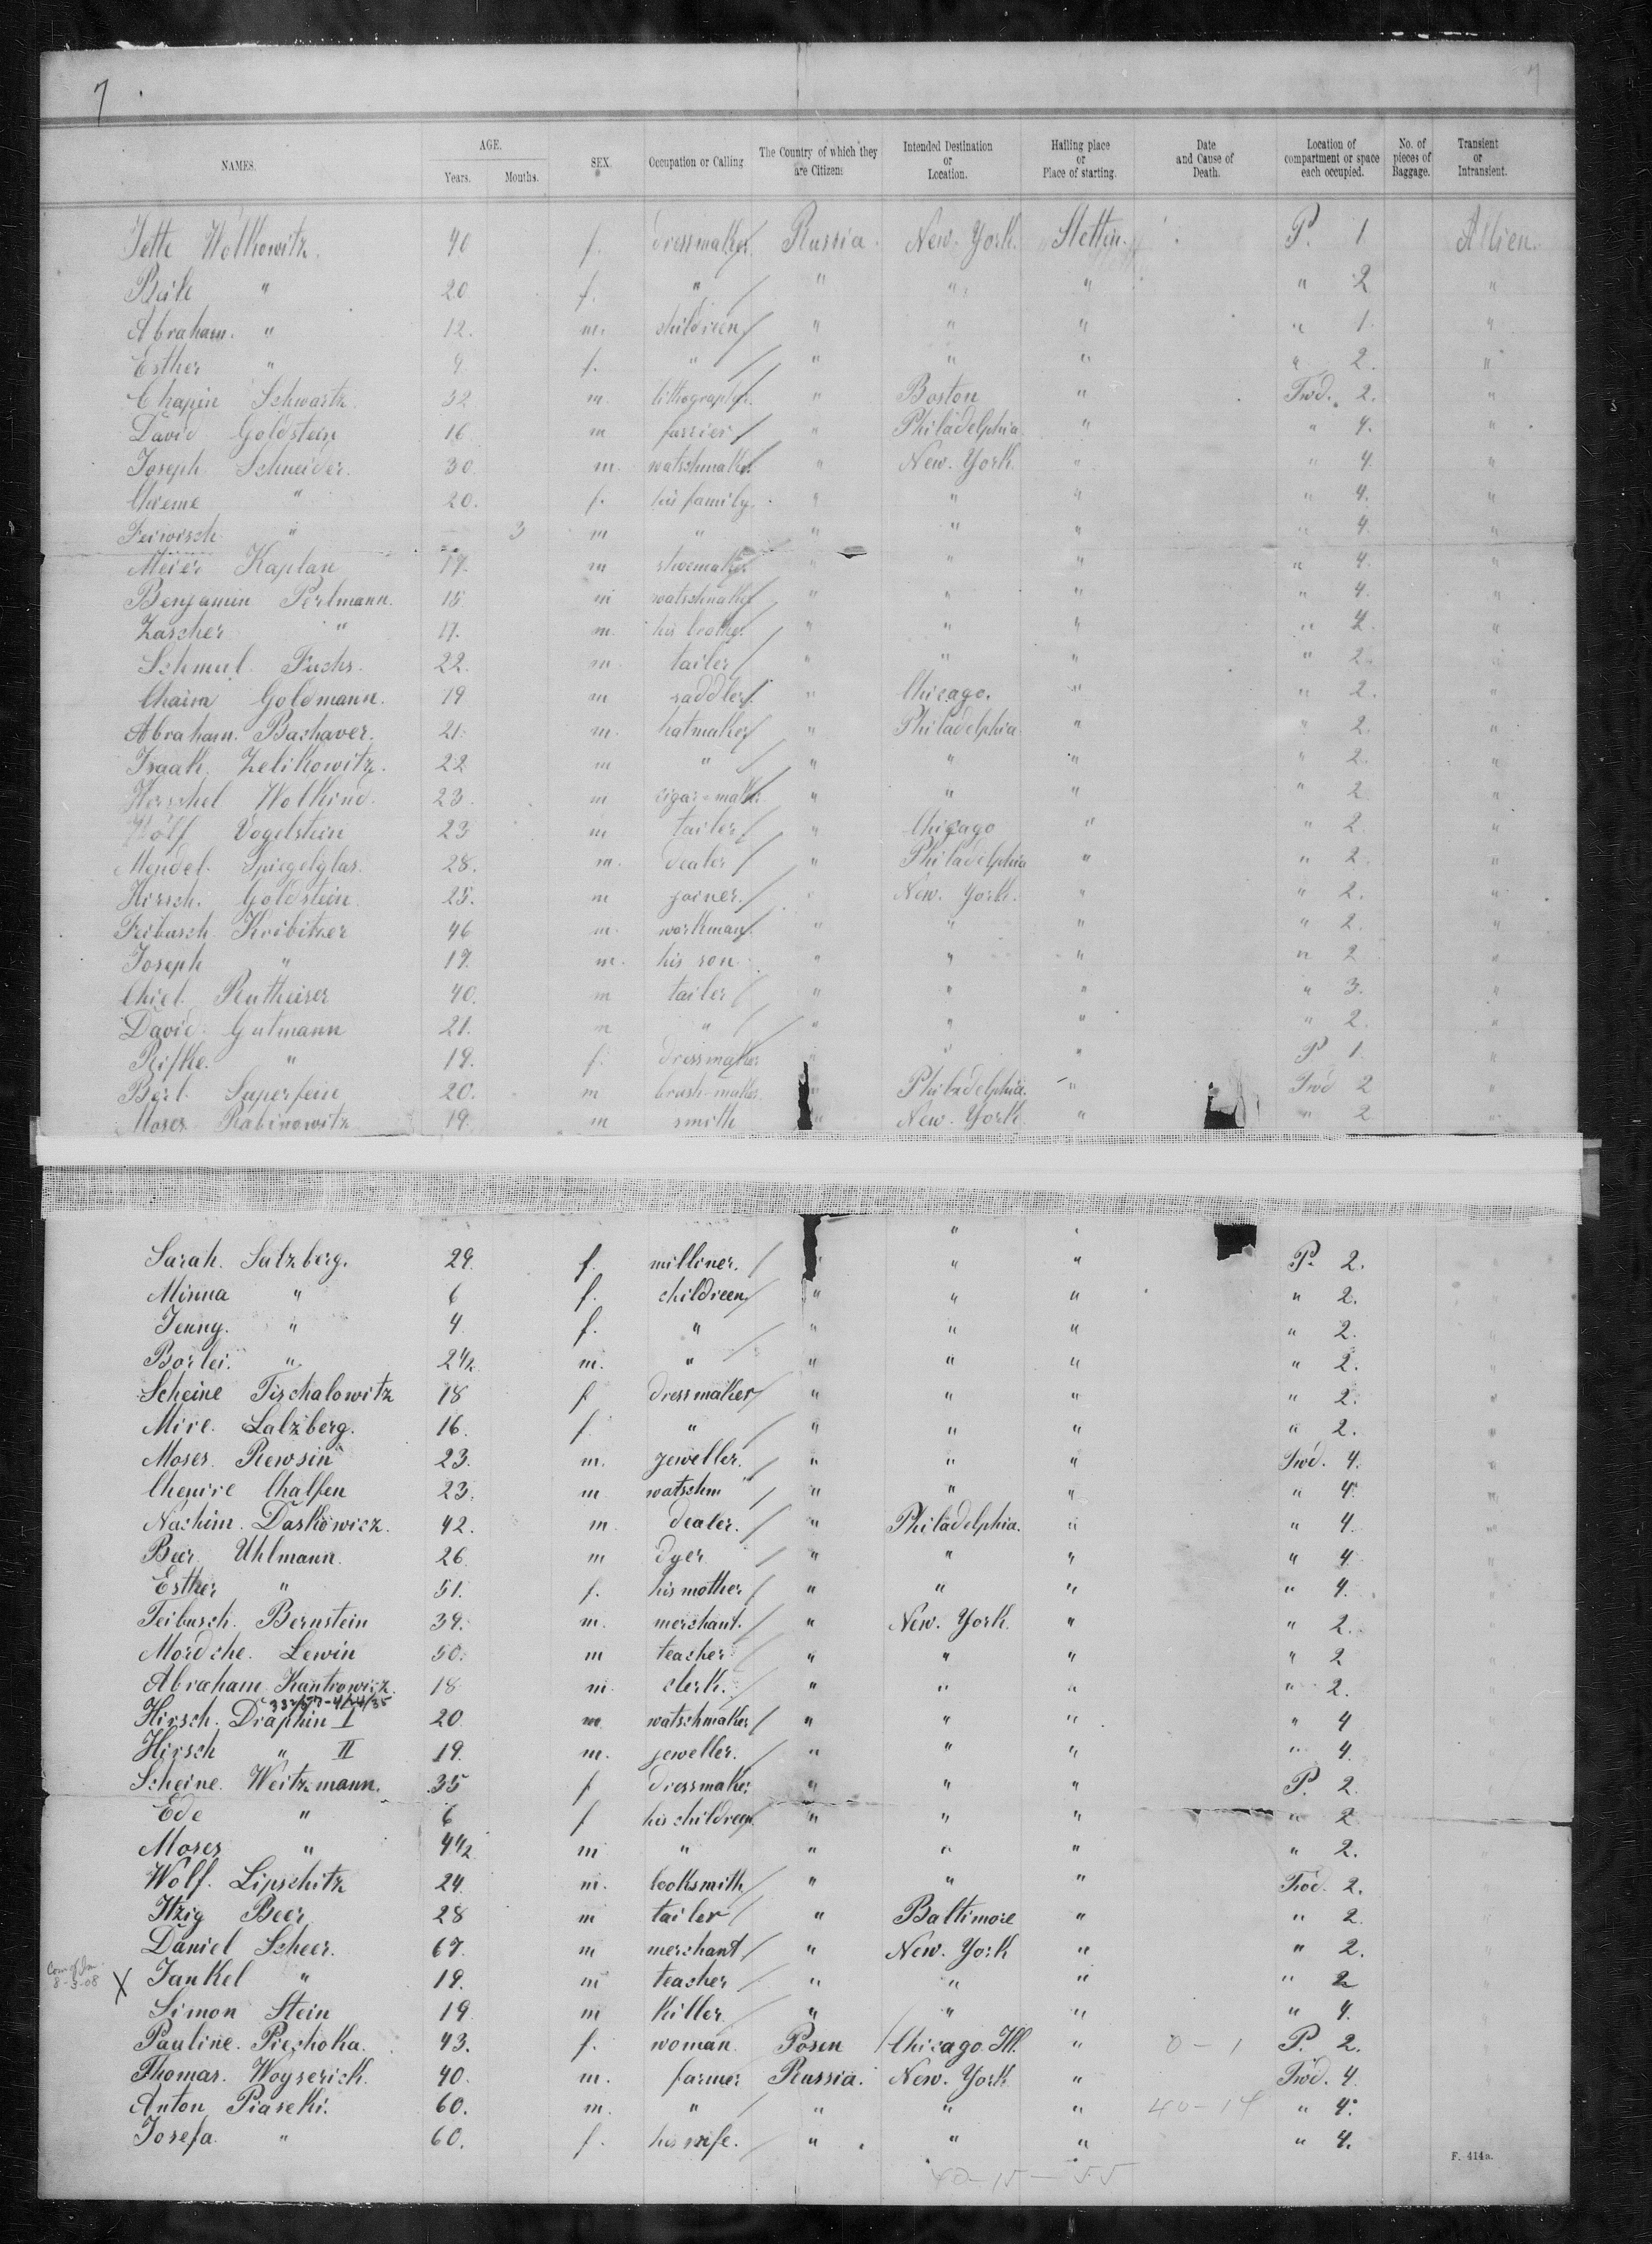 7
7
NAMES. AGE. Years. Months. SEX. Occupation or Calling The Country of which they are Citizens Intended Destination or Location. Hailing place or Place of starting. Date and Cause of Death. Location of compartment or space each occupied. No. of pieces of Baggage. Transient or Intransient.
Jette Wolkowitz. 40 f. dressmaker Russia. New. York. Stettin. P. 1 Allien.
Beile " 20 f. " " " " " 2 "
Abraham. " 12. m. childreen " " " " 1. "
Esther " 9 f. " " " " " 2. "
Chajim Schwartz. 32 m. lithograph. " Boston " Twd. 2. "
David Goldstein 16 m furrier " Philadelphia " " 4. "
Joseph Schneider. 30 m. watschmaker " New. York. " " 4 "
Chieme " 20. f. his family. " " " " 4. "
Feiwisch " 3 m " " " " " 4 "
Meier Kaplan 17. m shoemaker " " " " 4. "
Benjamin Perlmann. 18 m watschmaker " " " " 4. "
Zascher " 17. m. his brother " " " " 4. "
Schmul. Fuchs. 22. m. tailer " " " " 2. "
Chaim Goldmann. 19 m saddler " Chicago. " " 2. "
Abraham. Bachaver. 21. m. hatmaker " Philadelphia " " 2. "
Isaak. Zelikowitz. 22 m " " " " " 2. "
Herschel Wolkind. 23. m cigar-maker " " " " 2 "
Wolf Vogelstein 23 m tailer " Chicago " " 2 "
Mendel. Spiegelglas. 28. m. dealer " Philadelphia " " 2. "
Hirsch. Goldstein. 25. m joiner. " New. York. " " 2. "
Feibusch Kribitzer 46 m. workman. " " " " 2. "
Joseph " 17. m. his son. " " " " 2 "
Chiel. Rutheiser 40. m tailer " " " " 3. "
David. Gutmann 21. m " " " " " 2. "
Rifke. " 19. f. dressmaker " " " P 1. "
Berl. Superfein 20. m brush-maker " Philadelphia. " Twd 2 "
Moses Rabinowitz 19. m smith " New. York. " " 2 "
" "
Sarah. Salzberg. 29. f. milliner. " " " P. 2.
Minna " 6 f. childreen " " " " 2.
Jenny. " 4 f. " " " " " 2.
Borlei. " 2 1/2 m. " " " " " 2. "
Scheine Tischalowitz 18 f dressmaker " " " " 2. "
Mire. Salzberg. 16. f. " " " " " 2. "
Moses. Rewsin 23. m. jeweller. " " " Twd. 4. "
Chenire Chalfen 23. m watschm " " " " " 4. "
Nachim. Daskowicz. 42. m. dealer. " Philadelphia. " " 4. "
Beer. Uhlmann. 26 m dyer " " " " 4 "
Esther " 51. f. his mother " " " " 4. "
Feibusch. Bernstein 39. m. merchant. " New. York. " " 2. "
Mordche. Lewin 50. m teacher " " " " 2 "
Abraham Kantrowicz. 18 m. clerk. " " " " 2. "
Hirsch. Draphin I 20 m watschmaker " " " " 4
Hirsch " II 19. m. jeweller. " " " " 4.
Scheine. Weitzmann. 35 f dressmaker " " " P. 2.
Ede " 6 f his childreen " " " " 2
Moses " 4 1/2 m " " " " " 2.
Wolf. Lipschitz 24. m. looksmith " " " Twd. 2.
Itzig Beer 28 m tailer " Baltimore " " 2.
Daniel Scheer. 67. m merchant " New. York " " 2.
8-3-08 X Jankel " 19. m teacher " " " " 2
Simon Stein 19 m killer " " " " 4.
Pauline. Piechoka. 43. f. woman. Posen Chicago Ill. " 0 - 1 P. 2.
Thomas. Woyserick. 40. m. farmer Russia. New. York " Twd. 4.
Anton Piaseki. 60. m. " " " " 40-14 " 4.
Josefa " 60. f. his wife. " " " " 4.
40-15-55
F. 414a.